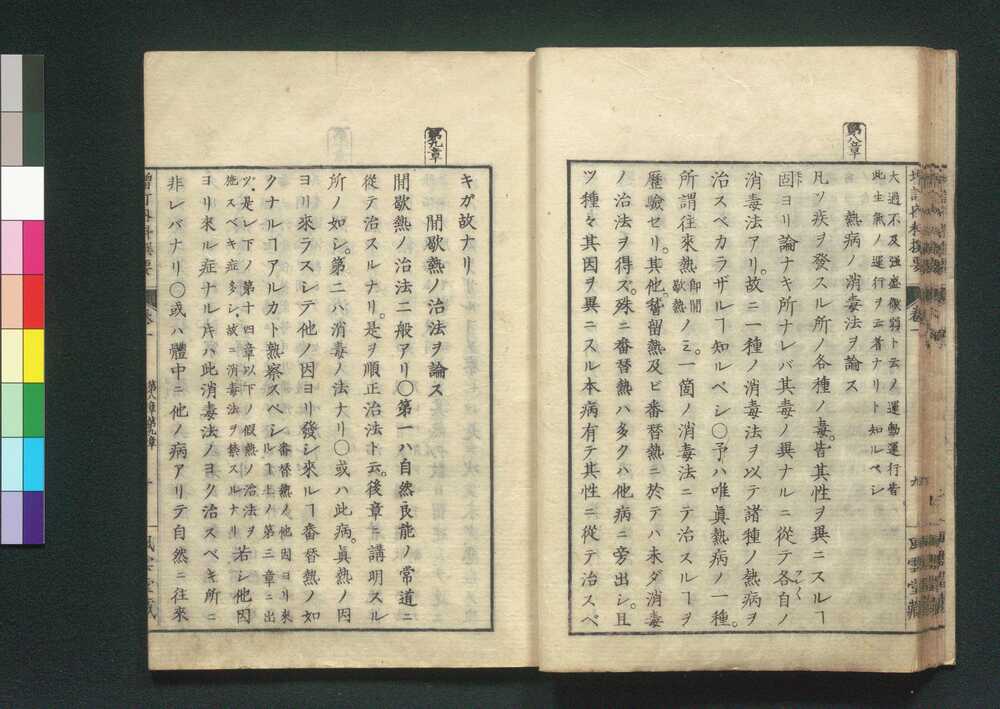 第八章
大過不及強盛微弱ト云ノ運動運行皆
此生氣ノ運行ヲ云者ナリト知ルベシ
熱病ノ消毒法ヲ論ス
凡ソ疾ヲ發スル所ノ各種ノ毒。皆其性ヲ異ニスルヿ
固ヨリ論ナキ所ナレバ其毒ノ異ナルニ從テ各自ノ
消毒法アリ。故ニ一種ノ消毒法ヲ以テ諸種ノ熱病ヲ
治スベカラザルヿ知ルベシ〇予ハ唯眞熱病ノ一種。
所謂往來熱即間歇熱ノミ。一箇ノ消毒法ニテ治スルヿヲ
歷驗セリ。其他。稽留熱及ビ番替熱ニ於テハ未ダ消毒
ノ治法ヲ得ズ。殊ニ番替熱ハ多クハ他病ニ旁出シ。且
ツ種々其因ヲ異ニスル本病有テ其性ニ從テ治スベ
第九章
キガ故ナリ
間歇熱ノ治法ヲ論ス
間歇熱ノ治法二般アリ〇第一ハ自然良能ノ常道ニ
從テ治スルナリ。是ヲ順正治法ト云。後章ニ講明スル
所ノ如シ。第二ハ消毒ノ法ナリ〇或ハ此病。眞熱ノ因
ヨリ來ラスシテ他ノ因ヨリ發シ來ルヿ番替熱ノ如
クナルヿアルカト熟察スベシ番替熱ノ他因ヨリ來
ルヿ上ノ第三章ニ出
ツ。是レ下ノ第十四章以下ノ假熱ノ治法ヲ
施スベキ症多シ。故ニ消毒法ヲ禁スルナリ若シ他因
ヨリ來ル症ナルトキハ此消毒法ノヨク治スベキ所ニ
非レバナリ〇或ハ體中ニ他ノ病アリテ自然ニ往來
第八章第九章